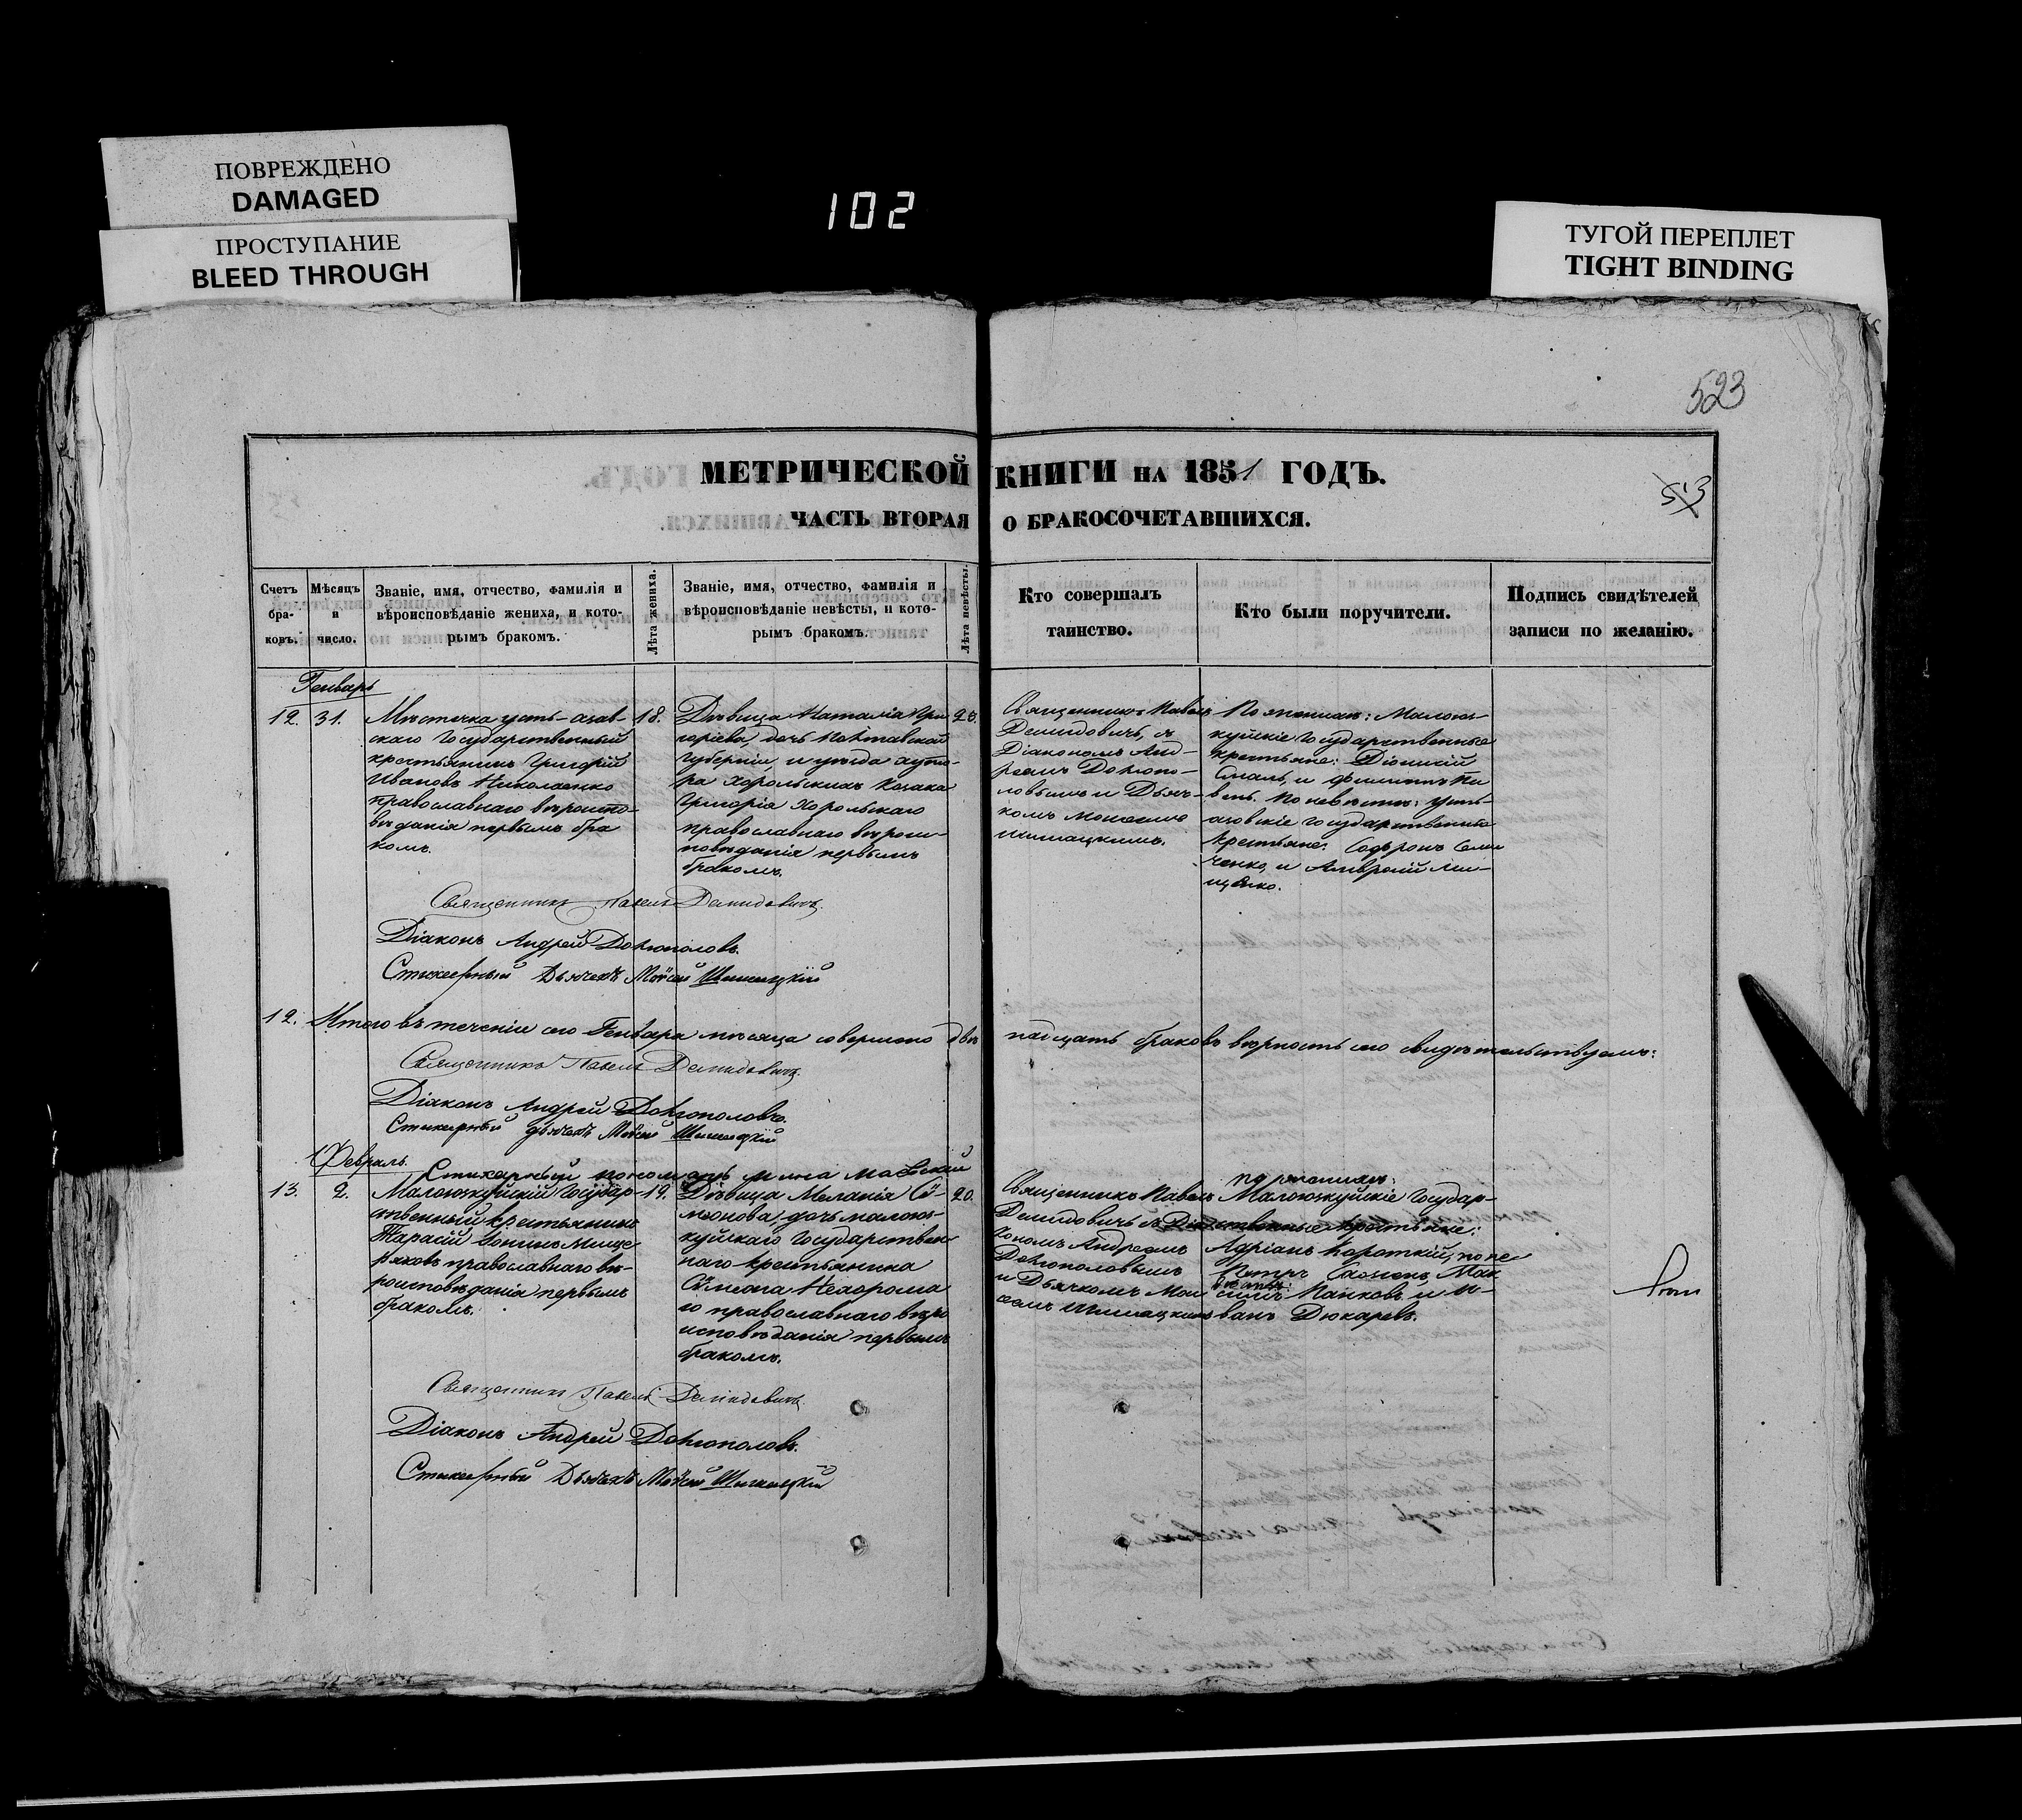 ПОВРЕЖДЕНО
DAMAGED
ПРОСТУПАНИЕ
BLEED THROUGH
102
ТУГОЙ ПЕРЕПЛЕТ
TIGHT BINDING
523
МЕТРИЧЕСКОЙ КНИГИ НА 1851 ГОДЪ.
513
ЧАСТЬ ВТОРАЯ О БРАКОСОЧЕТАВШИХСЯ.
Счетъ бра-ковъ.
Мѣсяцъ и число.
Званіе, имя, отчество, фамилія и
вѣроисповѣданіе жениха, и кото-
рымъ бракомъ.
Лѣта жениха.
Званіе, имя, отчество, фамилія и
вѣроисповѣданіе невѣсты, и кото-
рымъ бракомъ.
Лѣта невѣсты.
Кто совершалъ
таинство.
Кто были поручители.
Подпись свидѣтелей
записи по желанію.
Генварь
12. 31.
Мѣстечка усть-азав-
скаго Государственный
крестьянинъ Григорій
Ивановъ Николаенко
православнаго вѣроиспо-
вѣданія первымъ бра
комъ.
18.
Дѣвица Наталія Гри
горіева, дочь Полтавской
губерніи, и уѣзда хуто-
ра Хорольскихъ Козака
Григорія Хорольскаго
православнаго вѣроис-
повѣданія первымъ
бракомъ.
20.
Священникъ Павелъ
Демидовичъ, съ
Діакономъ Анд-
реемъ Долгопо-
ловымъ и Дьяч-
комъ Моисеемъ
Шишацкимъ.
По женихѣ: Малою-
куйскіе Государственные
крестьяне: Діонисій
По невѣстѣ: усть-
азовскіе Государственные
крестьяне:
ченко, и Амвросій Ли-
щенко.
Священникъ Павелъ Демидовичъ.
Діаконъ Андрей Долгополовъ.
Стихарный Дьячекъ Мойсей Шишацкій
12. Итого въ теченіи сего Генваря мѣсяца совершено двѣ надцать браковъ вѣрность сего свидѣтельствуемъ:
Священникъ Павелъ Демидовичъ.
Діаконъ Андрей Долгополовъ.
Стихарный дьячекъ Мойсей Шишацкій
Февраль.
Стихарный пономарь
13. 2.
Государ-
ственный крестьянинъ
Тарасій
ряковъ православнаго вѣ-
роисповѣданія первымъ
бракомъ.
19.
Дѣвица Меланія Сѵ-
меонова, дочь малою-
куйскаго Государствен
наго крестьянина
Сѵмеона Нехороша
го православнаго вѣро
исповѣданія первымъ
бракомъ.
20.
Священникъ Павелъ
Демидовичъ съ Діа
кономъ Андреемъ
Долгополовымъ
и Дьячкомъ Мои
сеемъ Шишацкимъ
По женихѣ:
Государ-
ственные крестьяне:
Адріанъ Короткій, по не
вѣстѣ:
Петръ Мак
симъ Панковъ и И-
ванъ Дюкаревъ.
Священникъ Павелъ Демидовичъ.
Діаконъ Андрей Долгополовъ.
Стихарный Дьячекъ Мойсей Шишацкій